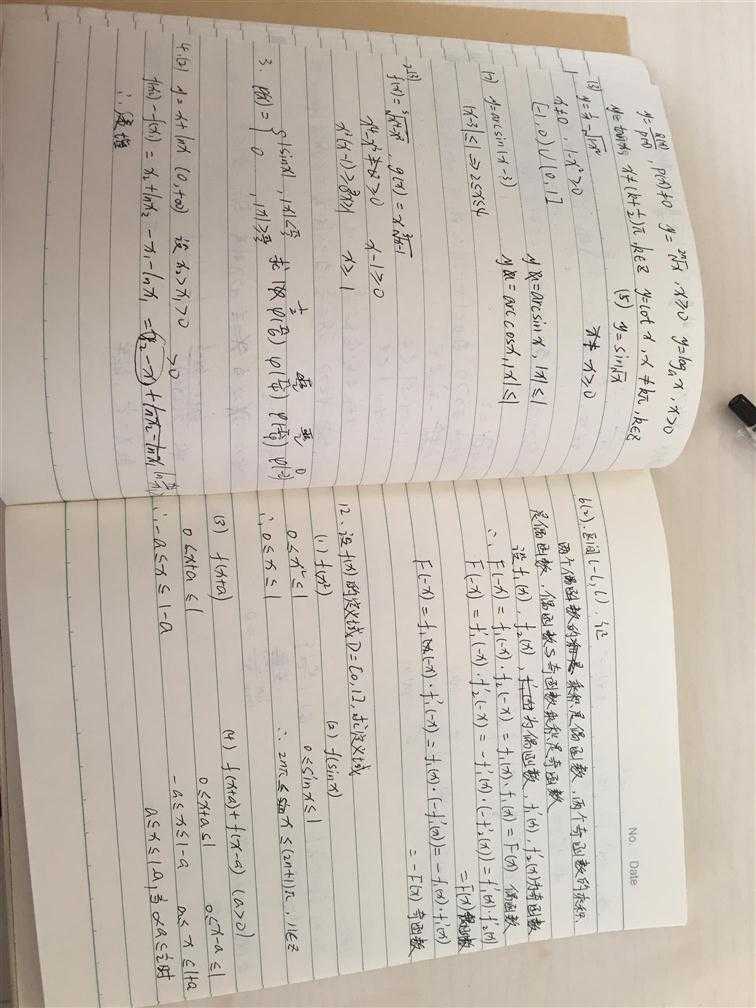 y=Q(x)/P(x), P(x)≠0 y=²ⁿ√x, x≥0 y=logₐx, x>0
y=tanx, x≠(k+1/2)π k∈Z y=cot x, x≠kπ, k∈Z
(3) y=1/x-√(1-x²) (5) y=sin√x
x≠0, 1-x²≥0 x≥0
[-1,0)∪(0,1] y=arcsinx, |x|≤1
(7) y=arcsin(x-3) y=arccosx, |x|≤1
|x-3|≤1 ⇒ 2≤x≤4
2(3)
f(x)=³√(x⁴-x³), g(x)=x³√(x-1)
x-1≥0
x≥1
3. φ(x)={|sinx|, |x|<π/3
0, |x|≥π/3 求 φ(π/6) φ(π/4) φ(-π/4) φ(-2)
4.(2) y=x+lnx (0,+∞) 设x₂>x₁>0
f(x₂)-f(x₁)=x₂+lnx₂-x₁-lnx₁=(x₂-x₁)+lnx₂-lnx₁
>0
No. Date
6(2). 区间(-l,l). 证
两个偶函数的乘积是偶函数, 两个奇函数的乘积
是偶函数, 偶函数与奇函数乘积是奇函数
设f₁(x), f₂(x), 为偶函数, f₁'(x), f₂'(x)为奇函数
∴ F(-x)=f₁(-x)·f₂(-x)=f₁(x)·f₁(x)=F(x) 偶函数
F(-x)=f₁'(-x)·f₂'(-x)=-f₁'(x)·(-f₂'(x))=f₁'(x)·f₂'(x)
=F(x) 偶函数
F(-x)=f₁(-x)·f₁'(-x)=f₁(x)·(-f₁'(x))=-f₁(x)·f₁'(x)
=-F(x) 奇函数
12. 设f(x)的定义域D=[0,1], 求定义域
(1) f(x²) (2) f(sinx)
0≤x²≤1 0≤sinx≤1
∴ 0≤x≤1 ∴ 2nπ≤x≤(2n+1)π, n∈Z
(3) f(x+a) (4) f(x+a)+f(x-a) (a>0)
0≤x+a≤1 0≤x+a≤1 0≤x-a≤1
∴ -a≤x≤1-a -a≤x≤1-a a≤x≤1+a
a≤x≤1-a,